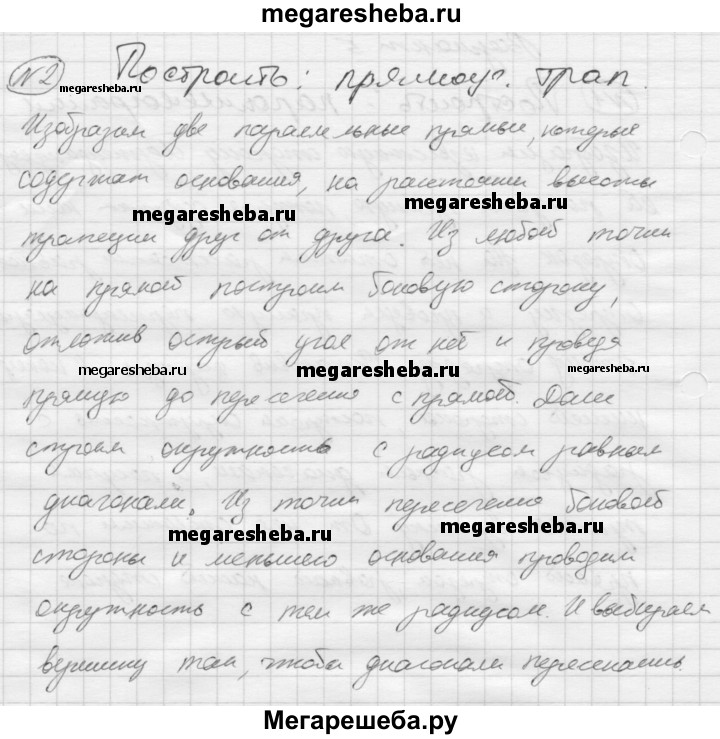 megaresheba.ru
№2 Построить: прямоуг. трап.
megaresheba.ru
Изобразим две параелельные прямые, которые
содержат основания, на расстоянии высоты
megaresheba.ru megaresheba.ru
трапеции друг от друга. Из любой точки
на прямой построим боковую сторону,
отложив острый угол от неё и проведя
megaresheba.ru megaresheba.ru megaresheba.ru
прямую до пересечения с прямой. Далее
строим окружность с радиусом равным
диагонали. Из точки пересечения боковой
megaresheba.ru megaresheba.ru
стороны и меньшего основания проводим
окружность с тем же радиусом. И выбираем
вершину так, чтобы диагонали пересекались.
Мегарешеба.ру